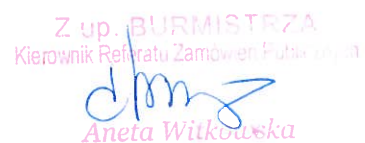 Z up. BURMISTRZA
Kierownik Referatu Zamówień Publicznych
Aneta Witkowska